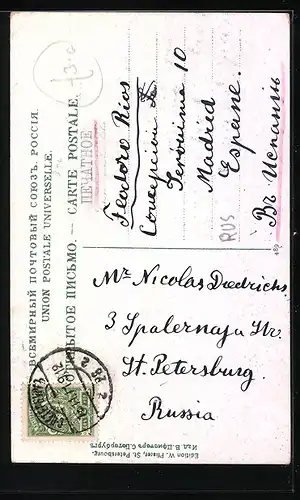 ВСЕМІРНЫЙ ПОЧТОВЫЙ СОЮЗЪ. РОССІЯ.
UNION POSTALE UNIVERSELLE.
ОТКРЫТОЕ ПИСЬМО. — CARTE POSTALE.
ПЕЧАТНОЕ
Feodoro Rios
Concepcion
Jeronima 10
Madrid
Espagne.
Въ Испанію
RUS
489
Mr Nicolas Diedrichs
3 Spalernaja Str.
St. Petersburg
Russia
Изд. В. Пфистеръ С. Петербургъ.
Edition W. Pfister, St. Petersbourg.